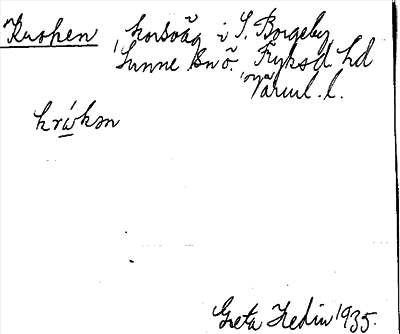 Kroken korsväg i S. Borgeby
Sunne sn ö. Fryksd. hd
Värml. l.
krωkən
Greta Hedin 1935.